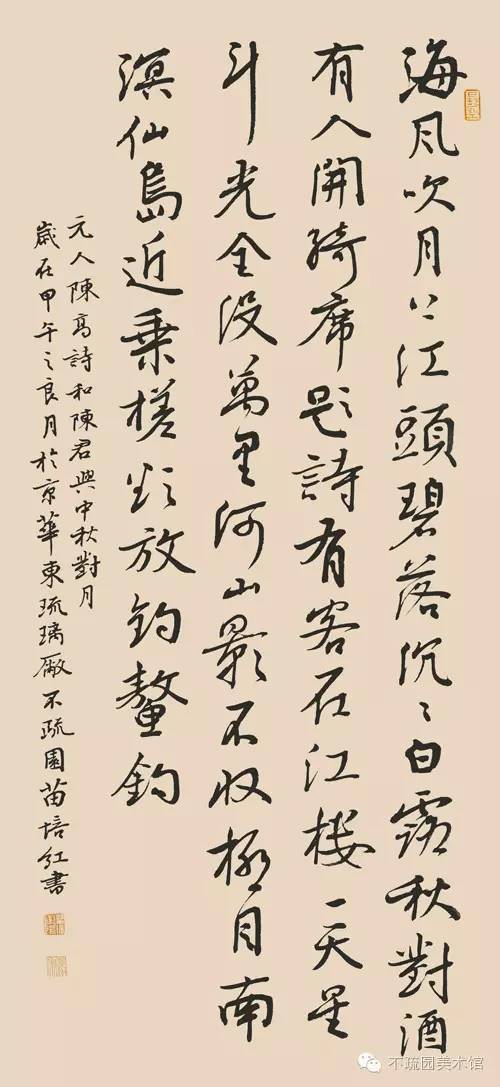 海风吹月上江頭碧落沉〻白露秋對酒
有人開綺席題詩有客在江樓一天星
斗光全没萬里河山影不收極目南
溟仙島近乘槎欲放釣鰲鈎
元人陳高詩和陳君與中秋對月
歲在甲午之良月於京華東琉璃廠不疏園苗培紅書
不疏园美术馆